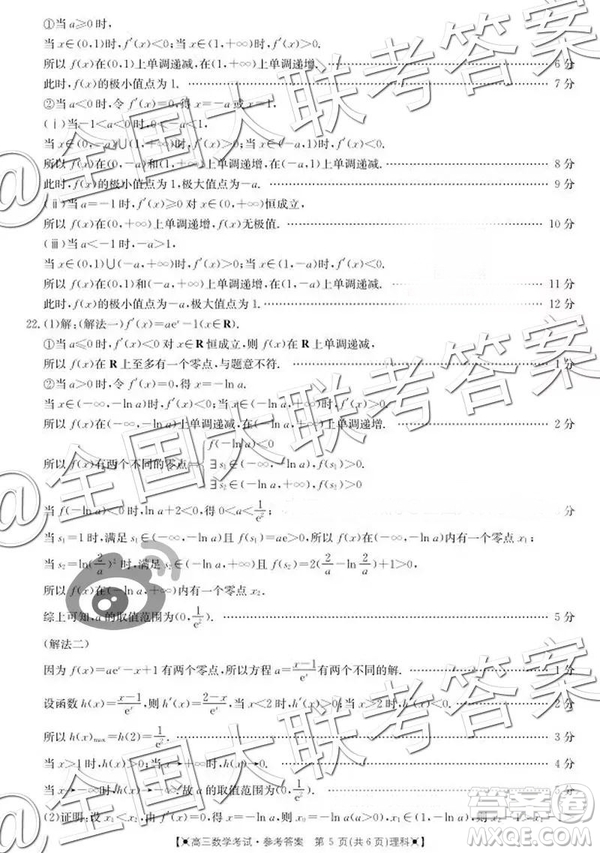 ①当 a⩾0 时,
当 x∈(0,1)时,f′(x)<0,当 x∈(1,+∞)时,f′(x)>0.
所以 f(x)在(0,1)上单调递减,在(1,+∞)上单调递增. 6 分
此时,f(x)的极小值点为 1. 7 分
②当 a<0 时,令 f′(x)=0,得 x=-a 或 x=1.
(ⅰ)当-1<a<0 时,0<-a<1,
当 x∈(0,-a)∪(1,+∞)时,f′(x)>0,当 x∈(-a,1)时,f′(x)<0.
所以 f(x)在(0,-a)和(1,+∞)上单调递增,在(-a,1)上单调递减. 8 分
此时,f(x)的极小值点为 1,极大值点为-a. 9 分
(ⅱ)当 a=-1 时,f′(x)⩾0 对 x∈(0,+∞)恒成立,
所以 f(x)在(0,+∞)上单调递增,f(x)无极值. 10 分
(ⅲ)当 a<-1 时,-a>1,
当 x∈(0,1)∪(-a,+∞)时,f′(x)>0,当 x∈(1,-a)时,f′(x)<0.
所以 f(x)在(0,1)和(-a,+∞)上单调递增,在(1,-a)上单调递减. 11 分
此时,f(x)的极小值点为-a,极大值点为 1. 12 分
22.(1)解:(解法一)f′(x)=aeˣ-1(x∈R).
①当 a⩽0 时,f′(x)<0 对 x∈R 恒成立,所以 f(x)在 R 上单调递减,
所以 f(x)在 R 上至多有一个零点,与题意不符. 1 分
②当 a>0 时,令 f′(x)=0,得 x=-ln a.
当 x∈(-∞,-ln a)时,f′(x)<0;当 x∈(-ln a,+∞)时,f′(x)>0.
所以 f(x)在(-∞,-ln a)上单调递减,在(-ln a,+∞)上单调递增. 2 分
f(-ln a)<0
所以 f(x)有两个不同的零点⇔ ∃s₁∈(-∞,-ln a),f(s₁)>0.
∃s₂∈(-ln a,+∞),f(s₂)>0
由 f(-ln a)<0,得 ln a+2<0,得 0<a<1/e². 3 分
当 s₁=1 时,满足 s₁∈(-∞,-ln a)且 f(s₁)=ae>0,所以 f(x)在(-∞,-ln a)内有一个零点 x₁;
当 s₂=ln(2/a)² 时,满足 s₂∈(-ln a,+∞)且 f(s₂)=2(2/a-ln 2/a)+1>0,
所以 f(x)在(-ln a,+∞)内有一个零点 x₂.
综上可知,a 的取值范围为(0,1/e²). 5 分
(解法二)
因为 f(x)=aeˣ-x+1 有两个零点,所以方程 a=(x-1)/eˣ 有两个不同的解.
设函数 h(x)=(x-1)/eˣ,则 h′(x)=(2-x)/eˣ,当 x<2 时,h′(x)>0,当 x>2 时,h′(x)<0, 2 分
所以 h(x)max=h(2)=1/e². 3 分
当 x>1 时,h(x)>0,当 x→+∞时,h(x)→0. 4 分
当 x→-∞时,h(x)→-∞,故 a 的取值范围为(0,1/e²). 5 分
(2)证明:设 f′(x)=0,则 x₀=-ln a(0>x₁,1),
【高三数学考试·参考答案 第 5 页(共 6 页)理科】
@全国大联考答案
答案圈